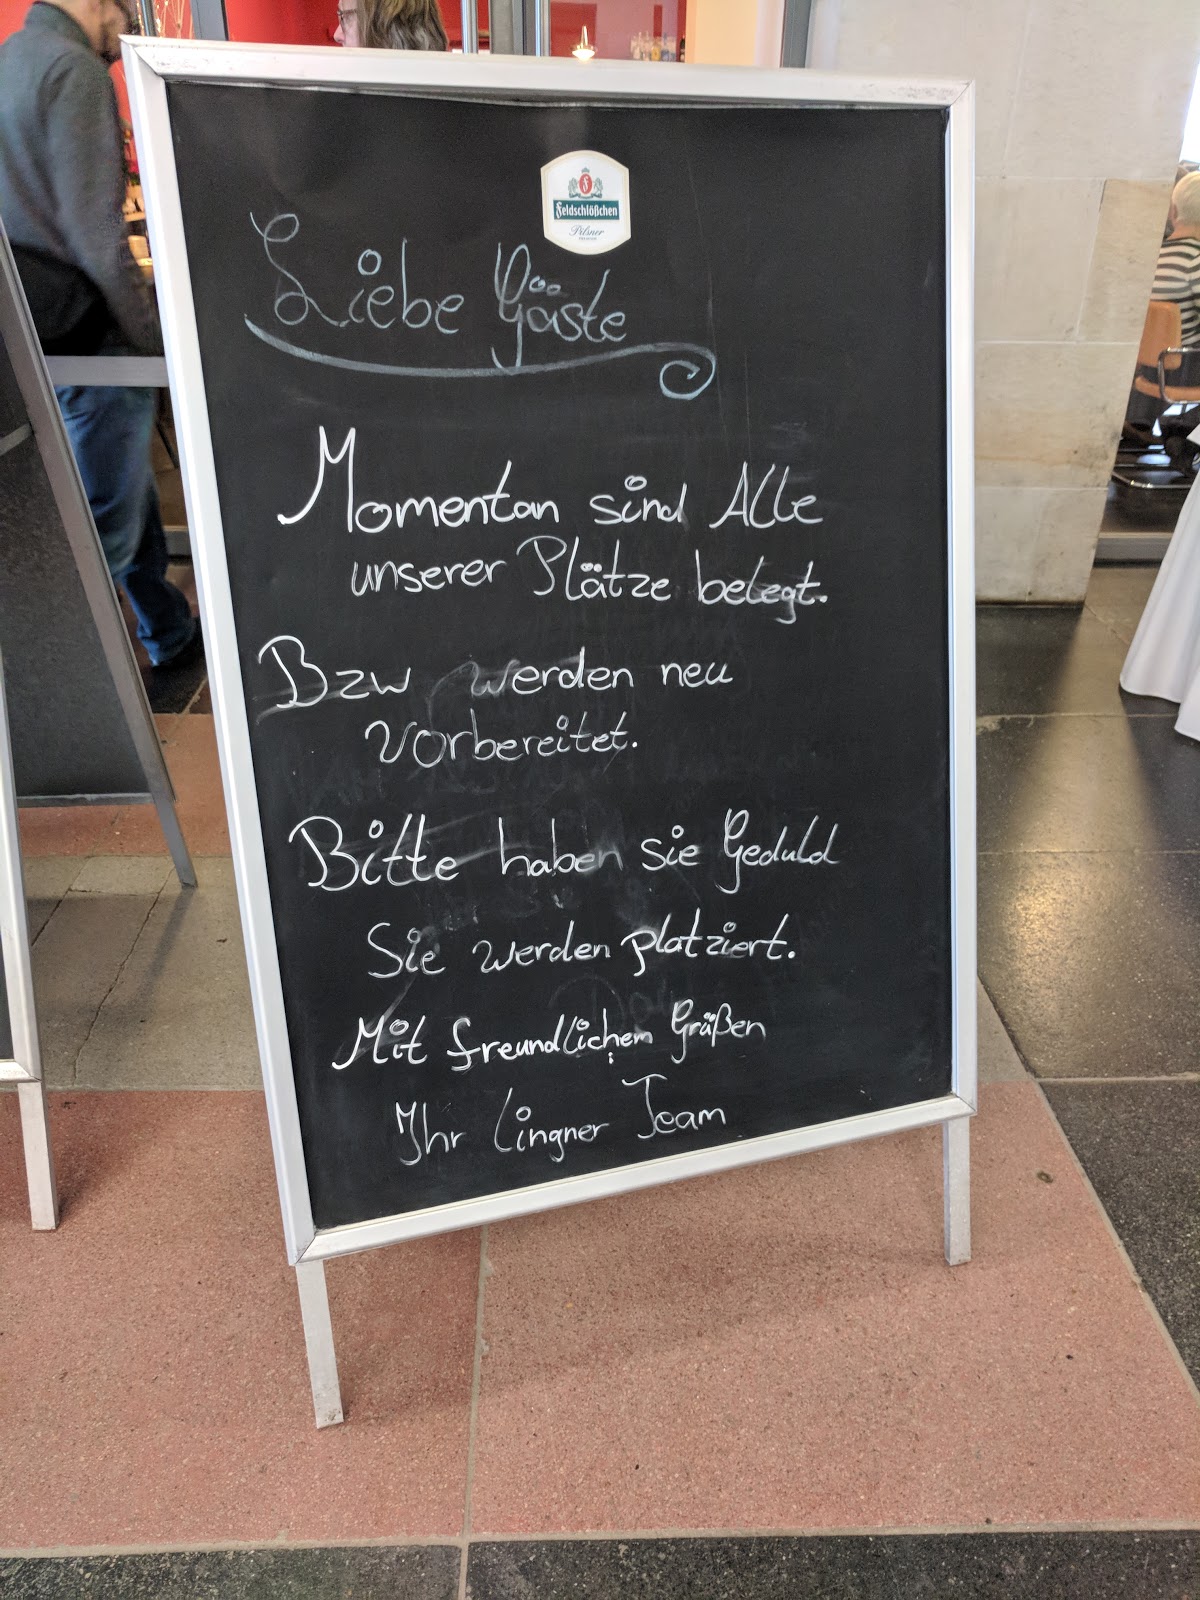 Feldschlößchen
Pilsner
Liebe Gäste
Momentan sind Alle
unserer Plätze belegt.
Bzw werden neu
Vorbereitet.
Bitte haben sie Geduld
Sie werden platziert.
Mit freundlichem Grüßen
Ihr Lingner Team